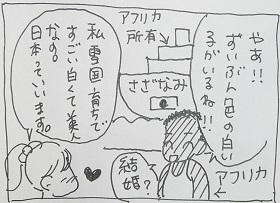 やあ!!
ずいぶん色の白い
子がいるね!!
アフリカ
所有→
さざなみ
アフリカ↑
私雪国育ちで
すごい白くて美人
なの。
日本っていいます。
結婚?